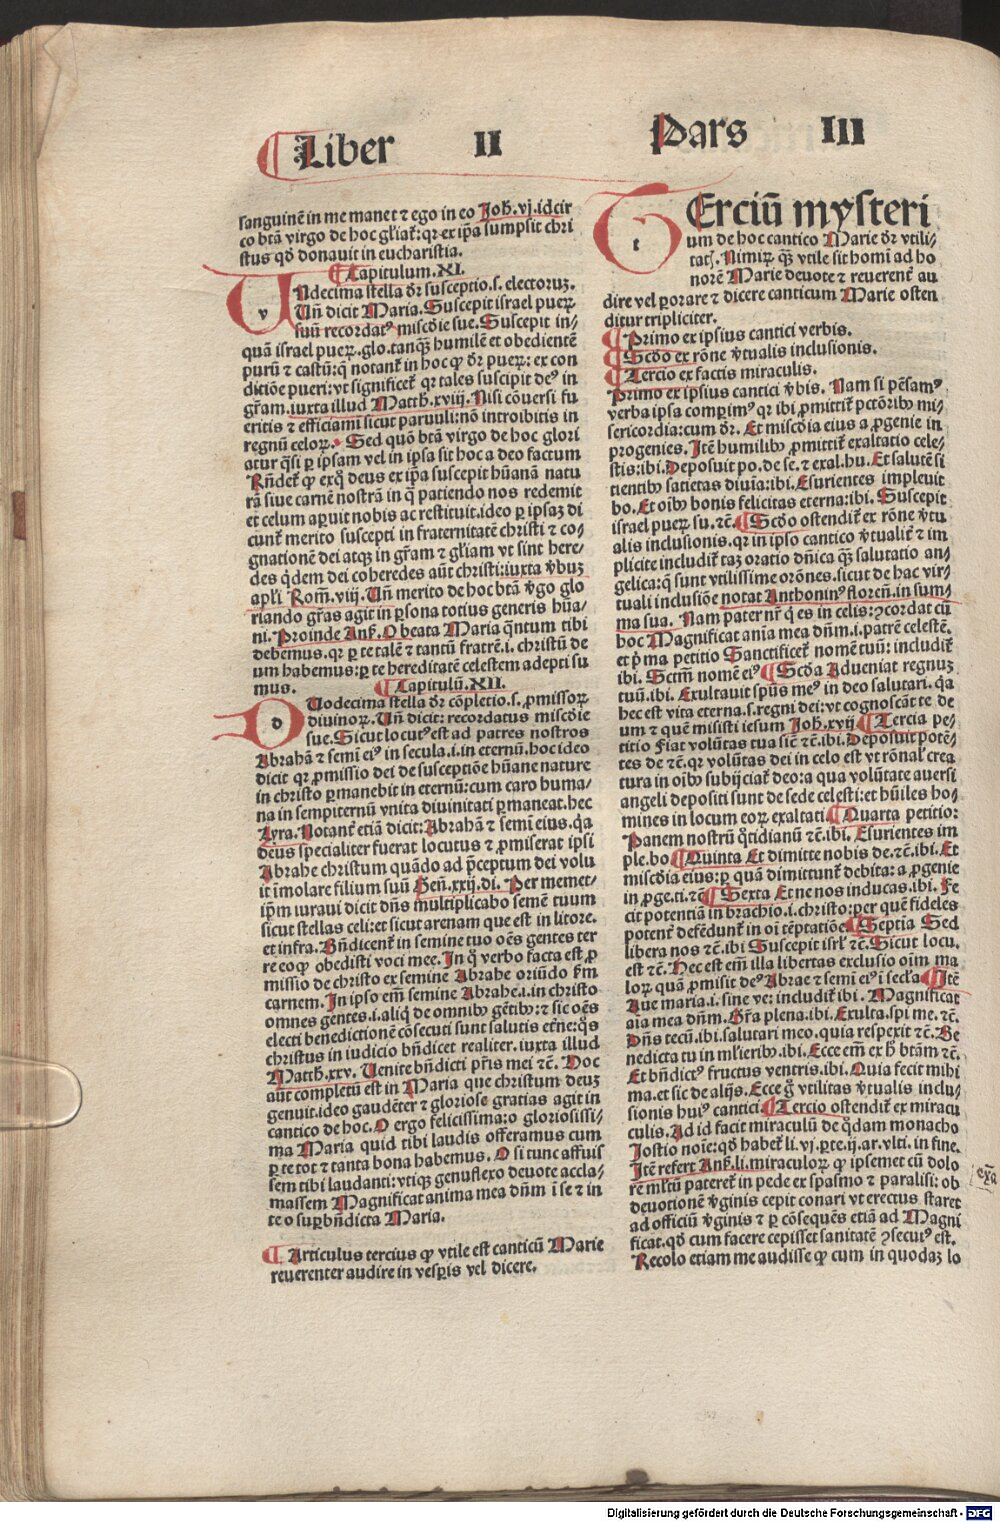 Liber II Pars III
sanguinē in me manet ⁊ ego in eo Joh̄.vj.idcir
co btā virgo de hoc gl̄iat̄:qꝛ ex ip̄a sumpsit chri
stus qd̄ donauit in eucharistia.
¶Capitulum.XI.
v Ndecima stella dr̄ susceptio.s.electoruꝫ.
Un̄ dicit Maria.Suscepit israel pueꝝ
suū recordatꝰ misc̄die sue.Suscepit in-
quā israel pueꝝ.glo.tanqꝫ humilē et obedientē
purū ⁊ castū:q̄ notant̄ in hoc ꝙ dr̄ pueꝝ:ex con
ditiōe pueri:vt significet̄ qꝛ tales suscipit deꝰ in
gr̄am.iuxta illud Matth̄.xviij.Nisi cōuersi fu
eritis ⁊ efficiami sicut paruuli:nō introibitis in
regnū celoꝝ. Sed quō btā virgo de hoc glori
atur q̄si ꝑ ipsam vel in ipsa sit hoc a deo factum
Rn̄det̄ ꝙ exq̄ deus ex ip̄a suscepit hūanā natu
rā siue carnē nostrā in q̄ patiendo nos redemit
et celum aꝑuit nobis ac restituit.ideo ꝑ ipsaꝫ di
cunt̄ merito suscepti in fraternitatē christi ⁊ co-
gnationē dei atqꝫ in gr̄am ⁊ gl̄iam vt sint here-
des q̄dem dei coheredes aūt christi:iuxta v̄buꝫ
apl̄i Rom̄.viij.Un̄ merito de hoc btā v̄go glo
riando gr̄as agit in ꝑsona totius generis hūa-
ni.Proinde Anẜ.O beata Maria qn̄tum tibi
debemus.qꝛ ꝑ te talē ⁊ tantū fratrē.i.christū de
um habemus:ꝑ te hereditatē celestem adepti su
mus. ¶Capitulū.XII.
d Uodecima stella dr̄ cōpletio.s.ꝓmissoꝝ
diuinoꝝ.Un̄ dicit:recordatus misc̄die
sue.Sicut locutꝰ est ad patres nostros
Abrahā ⁊ semī eiꝰ in secula.i.in eternū.hoc ideo
dicit qꝛ ꝓmissio dei de susceptiōe hūane nature
in christo ꝑmanebit in eternū:cum caro huma-
na in sempiternū vnita diuinitati ꝑmaneat.hec
Lyra.Notant̄ etiā dicit:Abrahā ⁊ semī eius.q̄a
deus specialiter fuerat locutus ⁊ ꝓmiserat ipsi
Abrahe christum quādo ad p̄ceptum dei volu
it īmolare filium suū Gen̄.xxij.di.Per memet-
ip̄m iuraui dicit dn̄s multiplicabo semē tuum
sicut stellas celi:et sicut arenam que est in litore.
et infra.Bn̄dicent̄ in semine tuo oēs gentes ter
re eo ꝙ obedisti voci mee.In q̄ verbo facta est ꝓ
missio de christo ex semine Abrahe oriūdo ẜm
carnem.In ipso em̄ semine Abrahe.i.in christo
omnes gentes.i.aliq̄ de omnibꝫ gētibꝫ:⁊ sic oēs
electi benedictionē cōsecuti sunt salutis et̄ne:q̄s
christus in iudicio bn̄dicet realiter.iuxta illud
Matth̄.xxv.Uenite bn̄dicti pr̄is mei ⁊c̄. Hoc
aūt completū est in Maria que christum deuꝫ
genuit.ideo gaudēter ⁊ gloriose gratias agit in
cantico de hoc.O ergo felicissima:o gloriosissi-
ma Maria quid tibi laudis offeramus cum
ꝑ te tot ⁊ tanta bona habemus.O si tunc affuis
sem tibi laudanti:vtiqꝫ genuflexo deuote accla-
massem Magnificat anima mea dn̄m ī se ⁊ in
te o suꝑbn̄dicta Maria.
¶Articulus tercius ꝙ vtile est canticū Marie
reuerenter audire in vesꝑis vel dicere.
t Erciū mysteri
um de hoc cantico Marie dr̄ vtili-
tatꝭ.Nimiꝝ qꝫ vtile sit homī ad ho
norē Marie deuote ⁊ reuerent̄ au
dire vel ꝑorare ⁊ dicere canticum Marie osten
ditur tripliciter.
¶Primo ex ipsius cantici verbis.
¶Scd̄o ex rōne v̄tualis inclusionis.
¶Tercio ex factis miraculis.
Primo ex ipsius cantici v̄bis. Nam si pēsamꝰ
verba ipsa comꝑimꝰ qꝛ ibi ꝓmittit̄ pctōribꝫ mi-
sericordia:cum dr̄. Et misc̄dia eius a ꝓgenie in
progenies.Itē humilibꝫ ꝓmittit̄ exaltatio cele-
stis:ibi.Deposuit po.de se.⁊ exal.hu.Et salutē si
tientibꝫ satietas diuia:ibi.Esurientes impleuit
bo.Et oībꝫ bonis felicitas eterna:ibi. Suscepit
israel pueꝝ su.⁊c̄.¶Scd̄o ostendit̄ ex rōne v̄tu
alis inclusionis.qꝛ in ipso cantico v̄tualit̄ ⁊ im
plicite includit̄ taꝫ oratio dn̄ica qꝫ salutatio an-
gelica:q̄ sunt vtilissime orōnes.sicut de hac vir-
tuali inclusiōe notat Anthoninꝰ floren̄.in sum-
ma sua. Nam pater nr̄ q̄ es in celis:ꝯcordat cū
hoc Magnificat anīa mea dn̄m.i.patrē celestē.
et p̄ma petitio Sanctificet̄ nomē tuū: includit̄
ibi. Sctm̄ nomē eiꝰ¶Scd̄a Adueniat regnuꝫ
tuū.ibi. Exultauit sp̄us meꝰ in deo salutari.q̄a
hec est vita eterna.s.regni dei:vt cognoscāt te de
um ⁊ quē misisti iesum Joh̄.xvij¶Tercia pe-
titio Fiat volūtas tua siē ⁊c̄.ibi.Deposuit potē-
tes de ⁊c̄.qꝛ volūtas dei in celo est vt rōnal̄ crea
tura in oībꝫ subijciat̄ deo:a qua volūtate auersi
angeli depositi sunt de sede celesti:et hūiles ho-
mines in locum eoꝝ exaltati¶Quarta petitio:
Panem nostrū q̄tidianū ⁊c̄.ibi.Esurientes im
ple.bo¶Quinta Et dimitte nobis de.⁊c̄.ibi.Et
misc̄dia eius:ꝑ quā dimittunt̄ debita:a ꝓgenie
in ꝓge.ti.⁊c̄¶Sexta Et ne nos inducas.ibi.Fe
cit potentiā in brachio.i.christo:per quē fideles
potent̄ defēdunt̄ in oī tēptatiōe¶Septia Sed
libera nos ⁊c̄.ibi Suscepit isrl̄ ⁊c̄.Sicut locu.
est ⁊c̄.Hec est em̄ illa libertas exclusio oīm ma
loꝝ quā ꝓmisit deꝰ Abrae ⁊ semī eiꝰ ī secl̄a¶Itē
Aue maria.i.sine ve:includit̄ ibi. Magnificat
aīa mea dn̄m.Gr̄a plena.ibi.Exulta.spi me.⁊c̄.
Dn̄s tecū.ibi.salutari meo.quia respexit ⁊c̄.Be
nedicta tu in ml̄ieribꝫ.ibi.Ecce em̄ ex h̄ btām ⁊c̄.
Et bn̄dictꝰ fructus ventris.ibi.Quia fecit mihi
ma.et sic de alijs.Ecce g̊ vtilitas v̄tualis inclu-
sionis huiꝰ cantici¶Tercio ostendit̄ ex miracu
culis.Ad id facit miraculū de q̄dam monacho
Jostio noīe:qd̄ habet̄ li.vj.ꝑte.ij.ar.vlti.in fine.
Itē refert Anẜ.li.miraculoꝝ ꝙ ipsemet cū dolo
rē ml̄tū pateret̄ in pede ex spasmo ⁊ paralisi:ob
deuotionē v̄ginis cepit conari vt erectus staret
ad officiū v̄ginis ⁊ ꝑ cōsequēs etiā ad Magni
ficat.qd̄ cum facere cepisset sanitatē ꝯsecutꝰ est.
Recolo etiam me audisse ꝙ cum in quodaꝫ lo
Digitalisierung gefördert durch die Deutsche Forschungsgemeinschaft - DFG